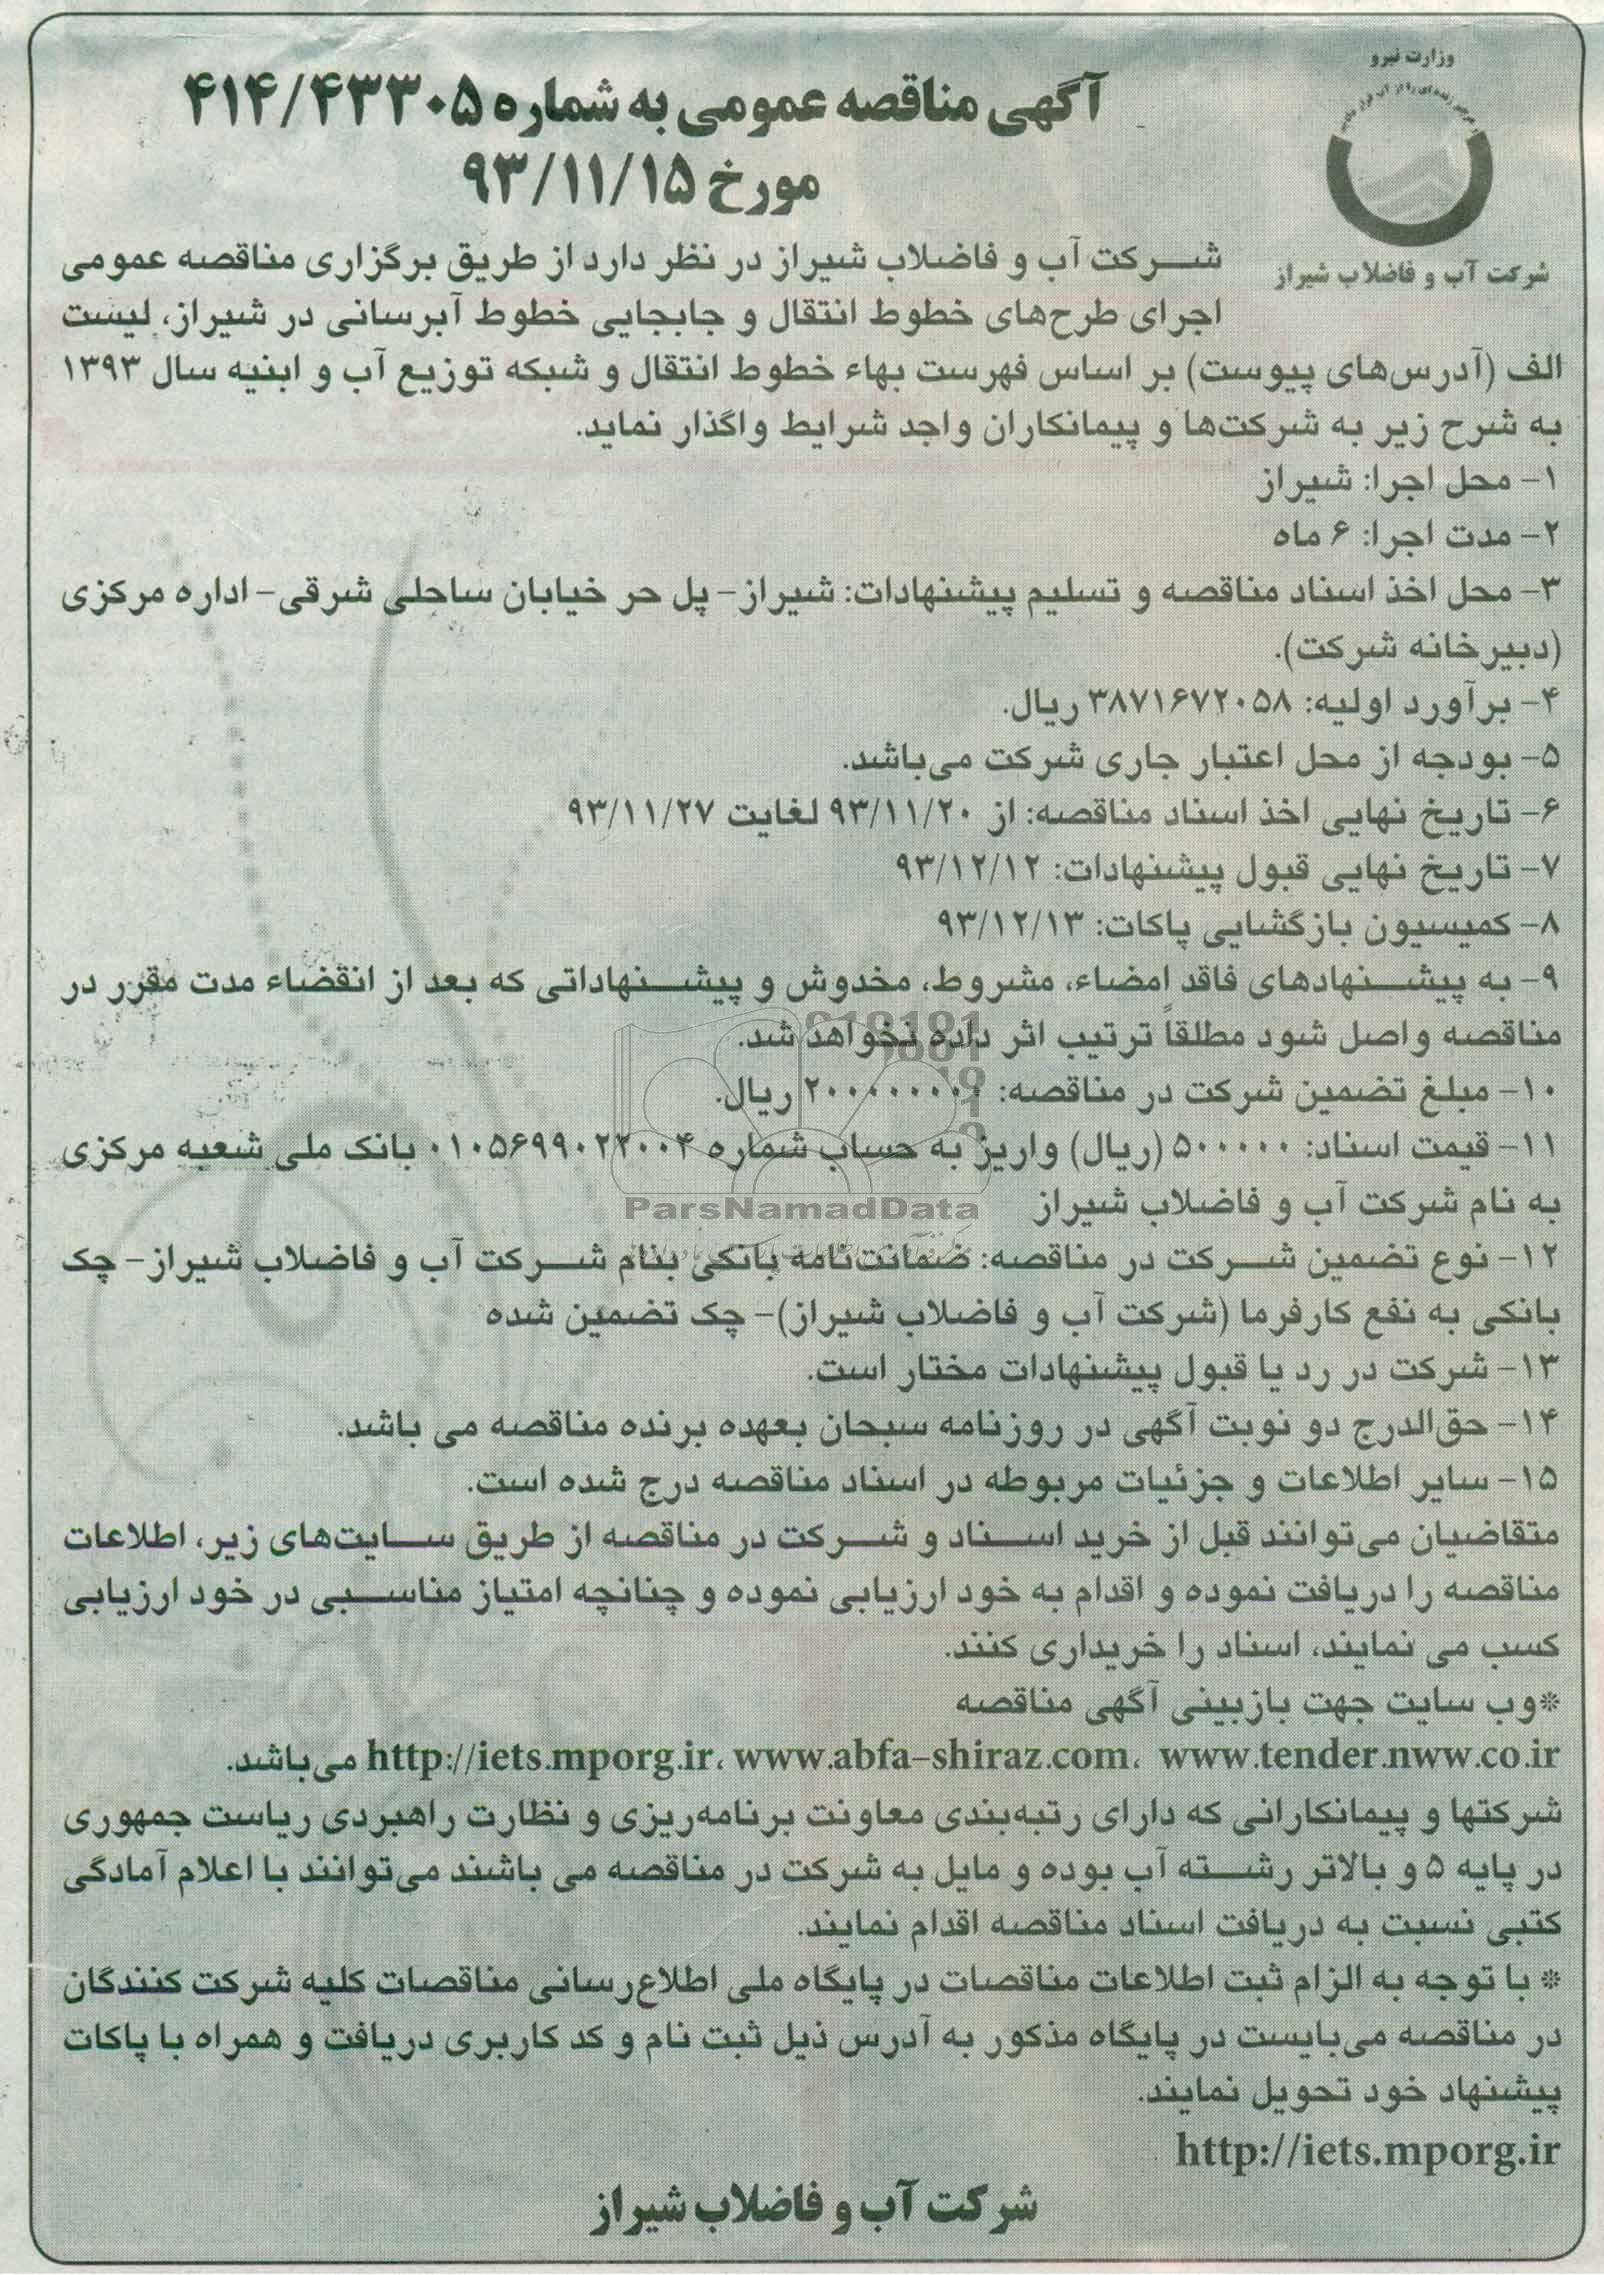 وزارت نیرو
شرکت آب و فاضلاب شیراز
آگهی مناقصه عمومی به شماره ۴۱۴/۴۳۳۰۵
مورخ ۹۳/۱۱/۱۵
شرکت آب و فاضلاب شیراز در نظر دارد از طریق برگزاری مناقصه عمومی
اجرای طرح‌های خطوط انتقال و جابجایی خطوط آبرسانی در شیراز، لیست
الف (آدرس‌های پیوست) بر اساس فهرست بهاء خطوط انتقال و شبکه توزیع آب و ابنیه سال ۱۳۹۳
به شرح زیر به شرکت‌ها و پیمانکاران واجد شرایط واگذار نماید.
۱- محل اجرا: شیراز
۲- مدت اجرا: ۶ ماه
۳- محل اخذ اسناد مناقصه و تسلیم پیشنهادات: شیراز- پل حر خیابان ساحلی شرقی- اداره مرکزی
(دبیرخانه شرکت).
۴- برآورد اولیه: ۳۸۷۱۶۷۲۰۵۸ ریال.
۵- بودجه از محل اعتبار جاری شرکت می‌باشد.
۶- تاریخ نهایی اخذ اسناد مناقصه: از ۹۳/۱۱/۲۰ لغایت ۹۳/۱۱/۲۷
۷- تاریخ نهایی قبول پیشنهادات: ۹۳/۱۲/۱۲
۸- کمیسیون بازگشایی پاکات: ۹۳/۱۲/۱۳
۹- به پیشنهادهای فاقد امضاء، مشروط، مخدوش و پیشنهاداتی که بعد از انقضاء مدت مقرر در
مناقصه واصل شود مطلقاً ترتیب اثر داده نخواهد شد.
۱۰- مبلغ تضمین شرکت در مناقصه: ۲۰۰۰۰۰۰۰۰ ریال.
۱۱- قیمت اسناد: ۵۰۰۰۰۰ (ریال) واریز به حساب شماره ۰۱۰۵۶۹۹۰۲۲۰۰۴ بانک ملی شعبه مرکزی
به نام شرکت آب و فاضلاب شیراز
ParsNamadData
۱۲- نوع تضمین شرکت در مناقصه: ضمانت‌نامه بانکی بنام شرکت آب و فاضلاب شیراز- چک
بانکی به نفع کارفرما (شرکت آب و فاضلاب شیراز)- چک تضمین شده
۱۳- شرکت در رد یا قبول پیشنهادات مختار است.
۱۴- حق‌الدرج دو نوبت آگهی در روزنامه سبحان بعهده برنده مناقصه می باشد.
۱۵- سایر اطلاعات و جزئیات مربوطه در اسناد مناقصه درج شده است.
متقاضیان می‌توانند قبل از خرید اسناد و شرکت در مناقصه از طریق سایت‌های زیر، اطلاعات
مناقصه را دریافت نموده و اقدام به خود ارزیابی نموده و چنانچه امتیاز مناسبی در خود ارزیابی
کسب می نمایند، اسناد را خریداری کنند.
*وب سایت جهت بازبینی آگهی مناقصه
http://iets.mporg.ir، www.abfa-shiraz.com، www.tender.nww.co.ir می‌باشد.
شرکتها و پیمانکارانی که دارای رتبه‌بندی معاونت برنامه‌ریزی و نظارت راهبردی ریاست جمهوری
در پایه ۵ و بالاتر رشته آب بوده و مایل به شرکت در مناقصه می باشند می‌توانند با اعلام آمادگی
کتبی نسبت به دریافت اسناد مناقصه اقدام نمایند.
* با توجه به الزام ثبت اطلاعات مناقصات در پایگاه ملی اطلاع‌رسانی مناقصات کلیه شرکت کنندگان
در مناقصه می‌بایست در پایگاه مذکور به آدرس ذیل ثبت نام و کد کاربری دریافت و همراه با پاکات
پیشنهاد خود تحویل نمایند.
http://iets.mporg.ir
شرکت آب و فاضلاب شیراز